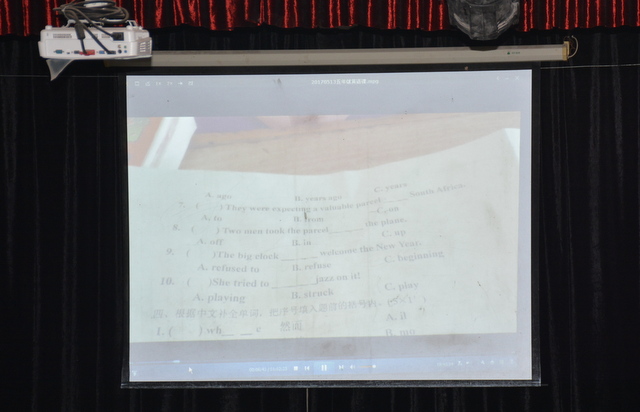 A. ago B. years ago C. years
7. ( ) They were expecting a valuable parcel ______ South Africa.
A. In B. from C. on
8. ( ) Two men took the parcel ______ the plane.
A. off B. in C. up
9. ( ) The big clock ______ welcome the New Year.
A. refused to B. refuse C. beginning
10. ( ) She tried to ______ jazz on it!
A. playing B. struck C. play
四、根据中文补全单词，把序号填入题前的括号内。
1. ( ) wh__ __e